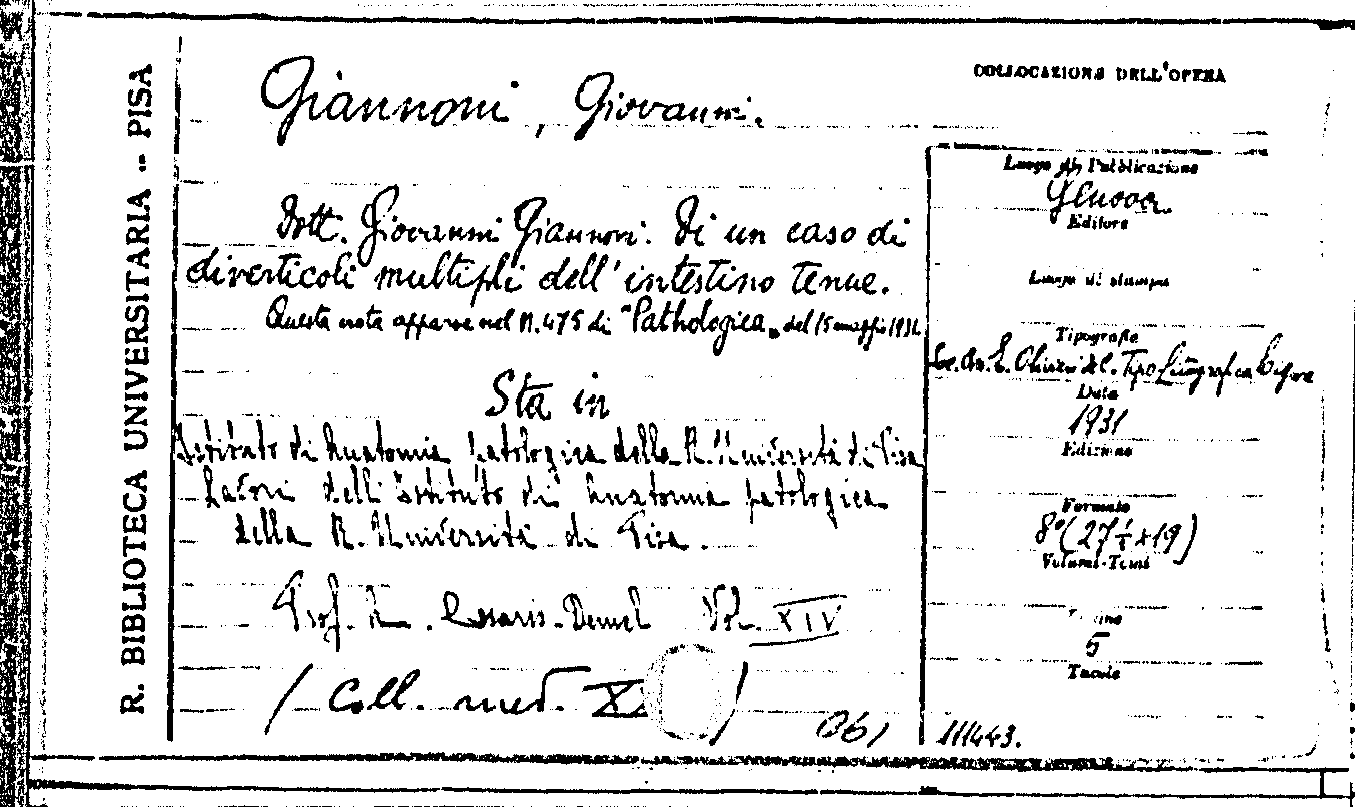 R. BIBLIOTECA UNIVERSITARIA -- PISA
Giannoni, Giovanni.
Dott. Giovanni Giannoni. Di un caso di
diverticoli multipli dell'intestino tenue.
Questa nota apparve nel N. 475 di "Pathologica" del 15 maggio 1931.
Sta in
Istituto di Anatomia patologica della R. Università di Pisa
Lavori dell'Istituto di Anatomia patologica
della R. Università di Pisa.
Prof. A. Cesaris-Demel Vol. XIV
(Coll. med.
COLLOCAZIONE DELL'OPERA
Luogo di Pubblicazione
Genova
Editore
Luogo di stampa
Tipografia
Tipo Litografica
Data
1931
Edizione
Formato
8º (27½ x 19)
Volumi-Tomi
5
Tavole
111443.